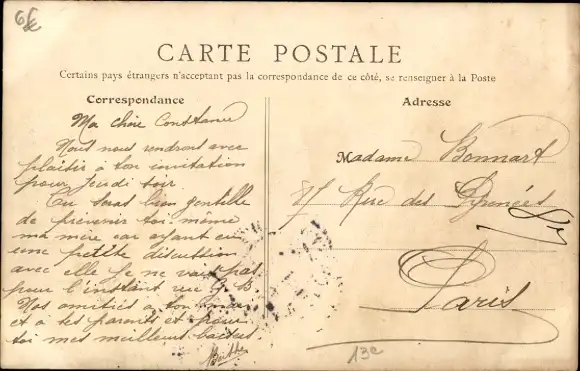 CARTE POSTALE
Certains pays étrangers n'acceptant pas la correspondance de ce côté, se renseigner à la Poste
Correspondance
Adresse
Ma chère Constance
Nous nous rendrons avec
plaisir à ton invitation
pour jeudi soir.
Tu seras bien gentille
de prévenir toi-même
ma mère car ayant eu
une petite discussion
avec elle je ne vais pas
pour l'instant rue G. B.
Nos amitiés à ton
et à tes parents et pour
toi mes meilleurs baisers
Berthe
Madame Bonnart
87 Rue des Pyrénées
87
Paris
13e